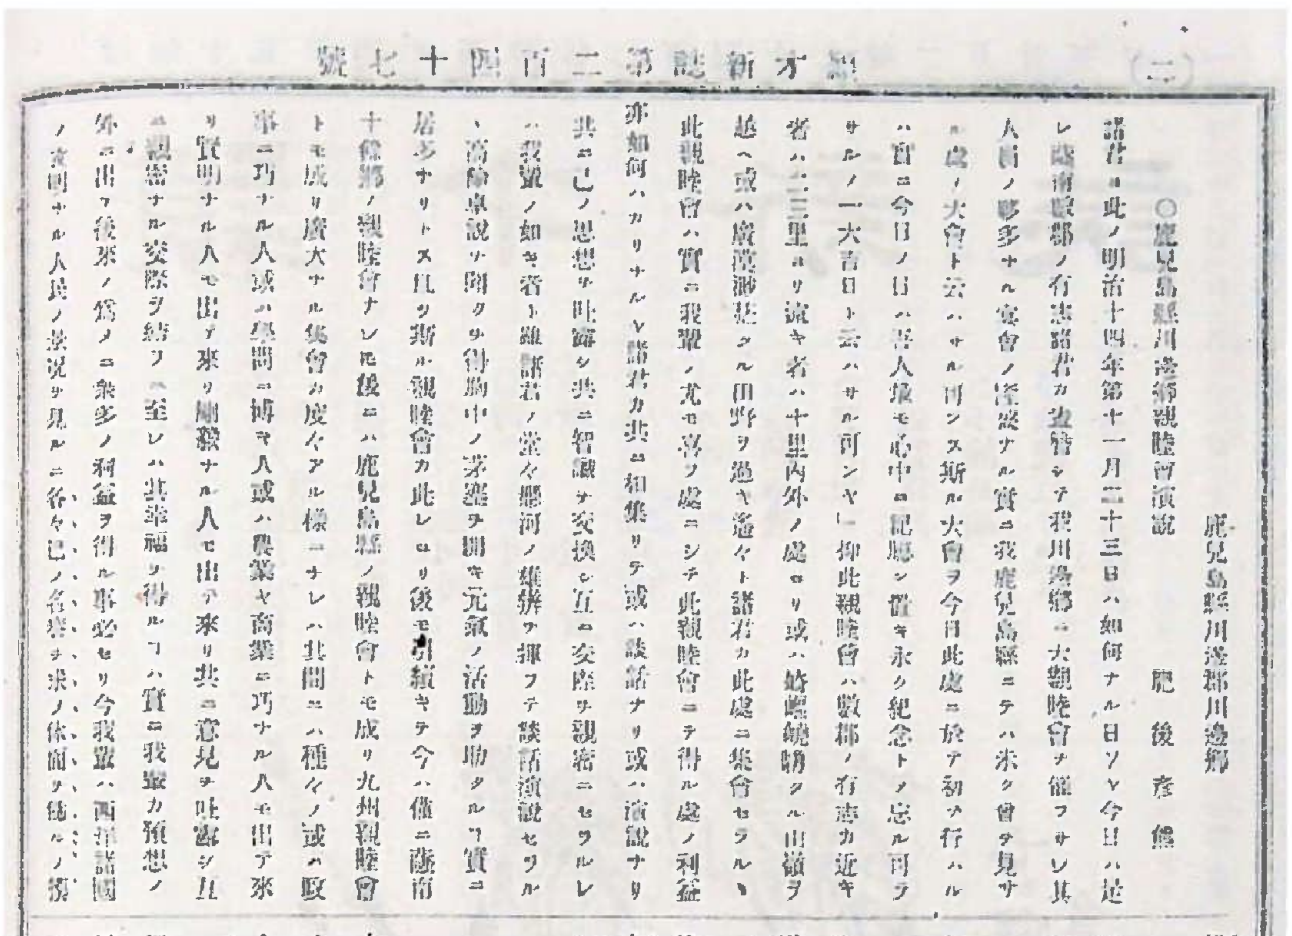 (二)
穎才新誌第二百四十七號
鹿兒島縣川邊郡川邊鄕
○鹿兒島縣川邊鄕親睦會演説 肥後彦熊
諸君ヨ此ノ明治十四年第十一月二十三日ハ如何ナル日ソヤ今日ハ是
レ薩南數郡ノ有志諸君カ シテ我川邊鄕ニ大親睦會ヲ催フサレ其
人衝ノ夥多ナル宴會ノ盛ナル實ニ我鹿兒島縣ニテハ未タ曾テ見サ
ル處ノ大會ト云ハサル可ンス斯ル大會ヲ今日此處ニ於テ初テ行ハル
ハ實ニ今日ノ日ハ吾人最モ心中ニ記臆シ置キ永ク紀念トシ忘ル可ラ
サルノ一大吉日ト云ハサル可ンヤ」抑此親睦會ハ數郡ノ有志カ近キ
者ハ二三里ヨリ遠キ者ハ十里内外ノ處ヨリ或ハ タル山嶽ヲ
越ヘ或ハ廣漠 タル田野ヲ過キ遙々ト諸君カ此處ニ集會セラルヽ
此親睦會ハ實ニ我輩ノ尤モ喜フ處ニシテ此親睦會ニテ得ル處ノ利益
亦如何ハカリナルヤ諸君カ共ニ相集リテ或ハ談話ナリ或ハ演説ナリ
共ニ己ノ思想ヲ吐露シ共ニ智識ヲ交換シ互ニ交際ヲ親密ニセラルレ
ハ我輩ノ如キ者ト雖諸君ノ堂々懸河ノ雄辯ヲ揮フテ談話演説セラル
ヽ高論卓説ヲ聞クヲ得胸中ノ茅塞ヲ開キ元氣ノ活動ヲ助クルヿ實ニ
居多ナリトス且ツ斯ル親睦會カ此レヨリ後モ引續キテ今ハ僅ニ薩南
十餘鄕ノ親睦會ナレモ後ニハ鹿兒島縣ノ親睦會トモ成リ九州親睦會
トモ成リ廣大ナル集會カ度々アル樣ニナレハ其間ニハ種々ノ或ハ政
事ニ巧ナル人或ハ學問ニ博キ人或ハ農業ヤ商業ニ巧ナル人モ出テ來
リ賢明ナル人モ出テ來リ剛毅ナル人モ出テ來リ共ニ意見ヲ吐露シ互
ニ親密ナル交際ヲ結フニ至レハ其幸福ヲ得ルヿハ實ニ我輩カ預想ノ
外ニ出テ後來ノ爲メニ衆多ノ利益ヲ得ル事必セリ今我輩ハ西洋諸國
ノ文明ナル人民ノ景況ヲ見ルニ各々己ノ名譽ヲ求メ体面ヲ ルノ